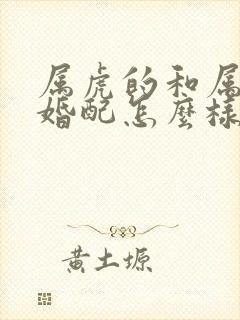 属虎的和属
婚配怎麼樣
黄土塬